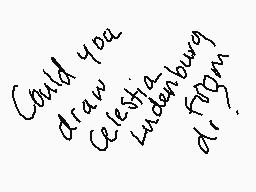 Could you
draw
Celestia
Ludenburg
from
dr.